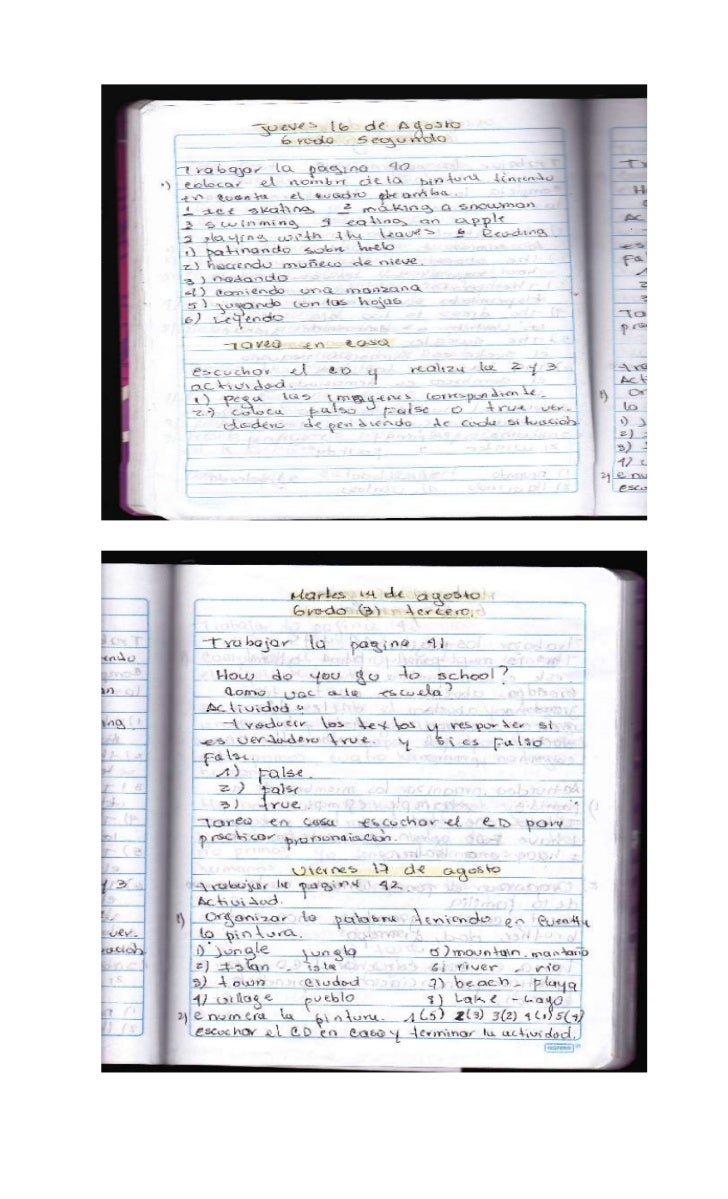 Jueves 16 de Agosto
Grado Segundo
Trabajar la página 40
1) colocar el nombre de la pintura teniendo
en cuenta el cuadro de arriba
1 ice skating 2 making a snowman
3 swimming 4 eating an apple
5 playing with the leaves 6 Reading.
1) patinando sobre hielo
2) haciendo muñeco de nieve.
3) nadando
4) comiendo una manzana
5) jugando con las hojas
6) Leyendo
Tarea en casa
escuchar el CD y realiza la 2 y 3
actividad.
1) pega las imagenes correspondiente.
2) coloca falso false o true ver-
dadero dependiendo de cada situación
Martes 14 de agosto
Grado (3) tercero.
Trabajar la pagina 41
How do you go to school?
Como vac a la escuela?
Actividad
Traducir los textos y responder si
es verdadero true. y si es falso
false.
1) False.
2) false
3) true
Tarea en casa escuchar el CD para
practicar pronunciación.
Viernes 17 de agosto
trabajar la pagina 42
Actividad.
1) Organizar la palabra teniendo en cuenta
la pintura.
1) jungle jungla 5) mountain. montaña
2) Islan - isla 6) river - rio
3) town ciudad 7) beach - playa
4) village pueblo 8) Lake - Lago
2) enumera la pintura. 1(5) 2(3) 3(2) 4(1) 5(4)
escuchar el CD en casa y terminar la actividad.
norma